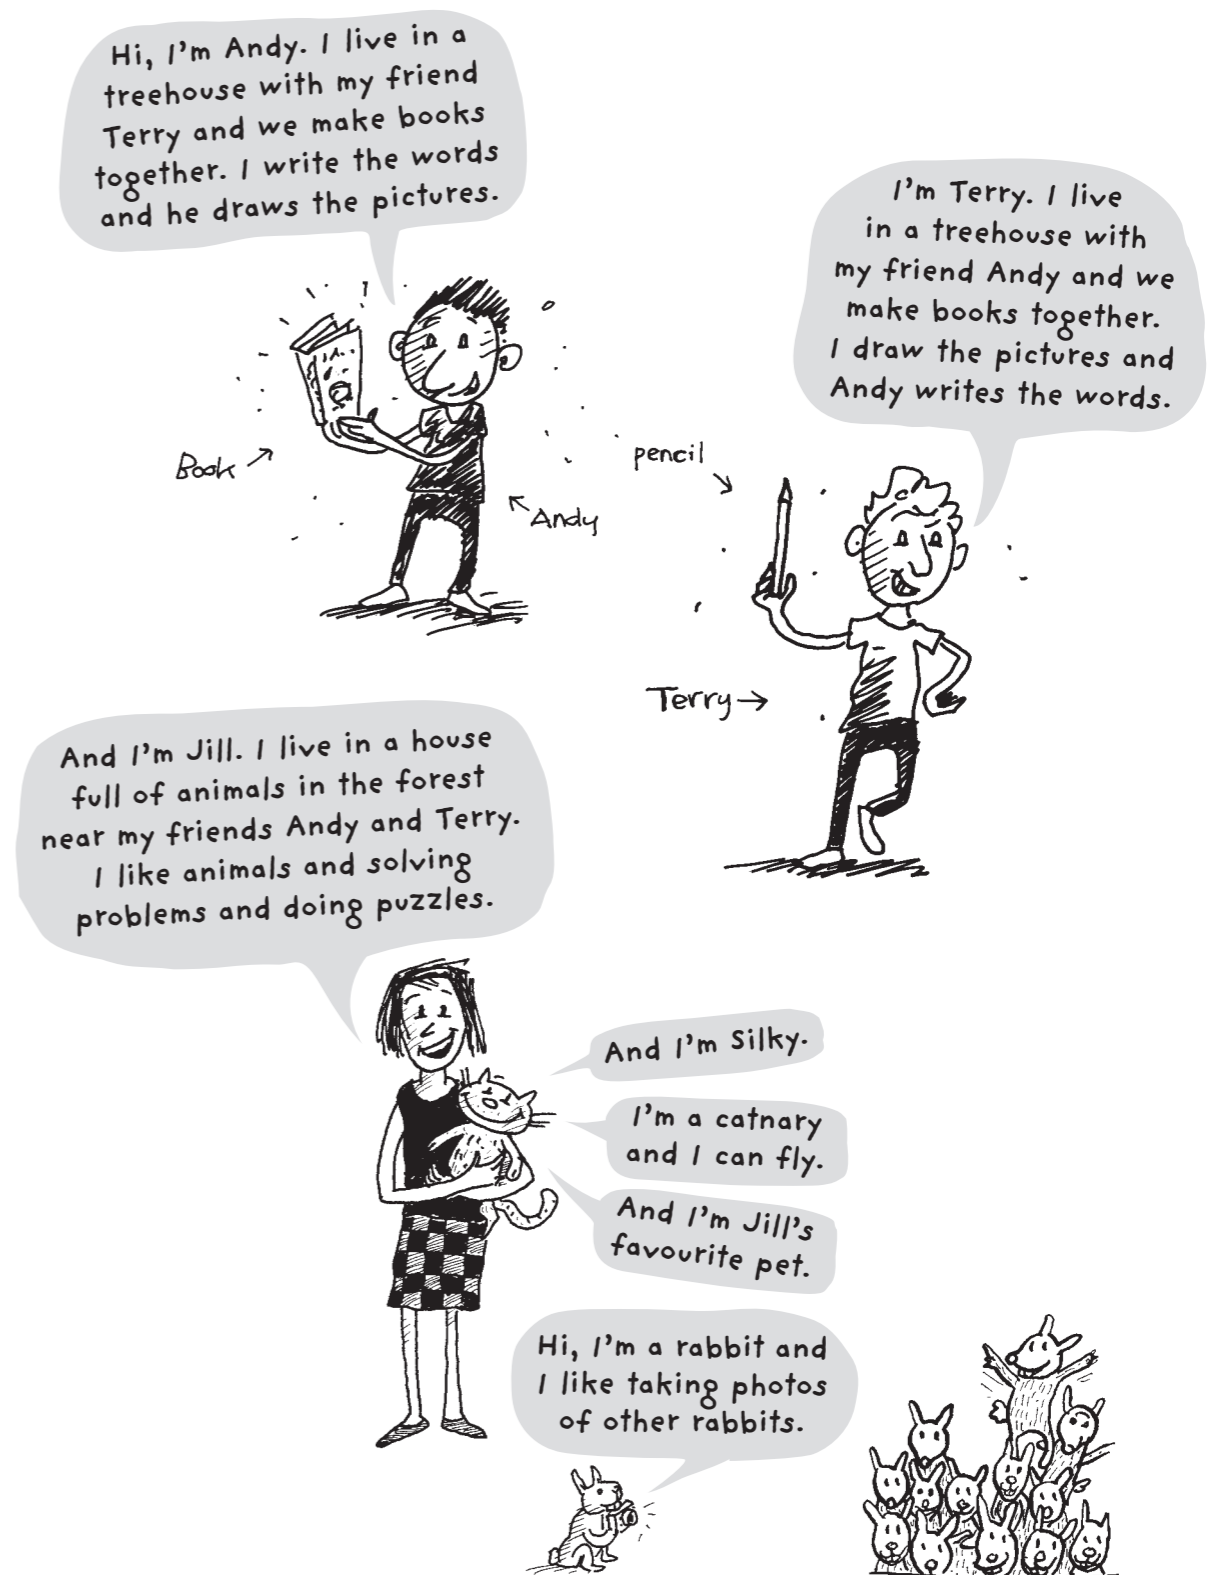 Hi, I'm Andy. I live in a
treehouse with my friend
Terry and we make books
together. I write the words
and he draws the pictures.
I'm Terry. I live
in a treehouse with
my friend Andy and we
make books together.
I draw the pictures and
Andy writes the words.
Book
Andy
pencil
Terry
And I'm Jill. I live in a house
full of animals in the forest
near my friends Andy and Terry.
I like animals and solving
problems and doing puzzles.
And I'm Silky.
I'm a catnary
and I can fly.
And I'm Jill's
favourite pet.
Hi, I'm a rabbit and
I like taking photos
of other rabbits.